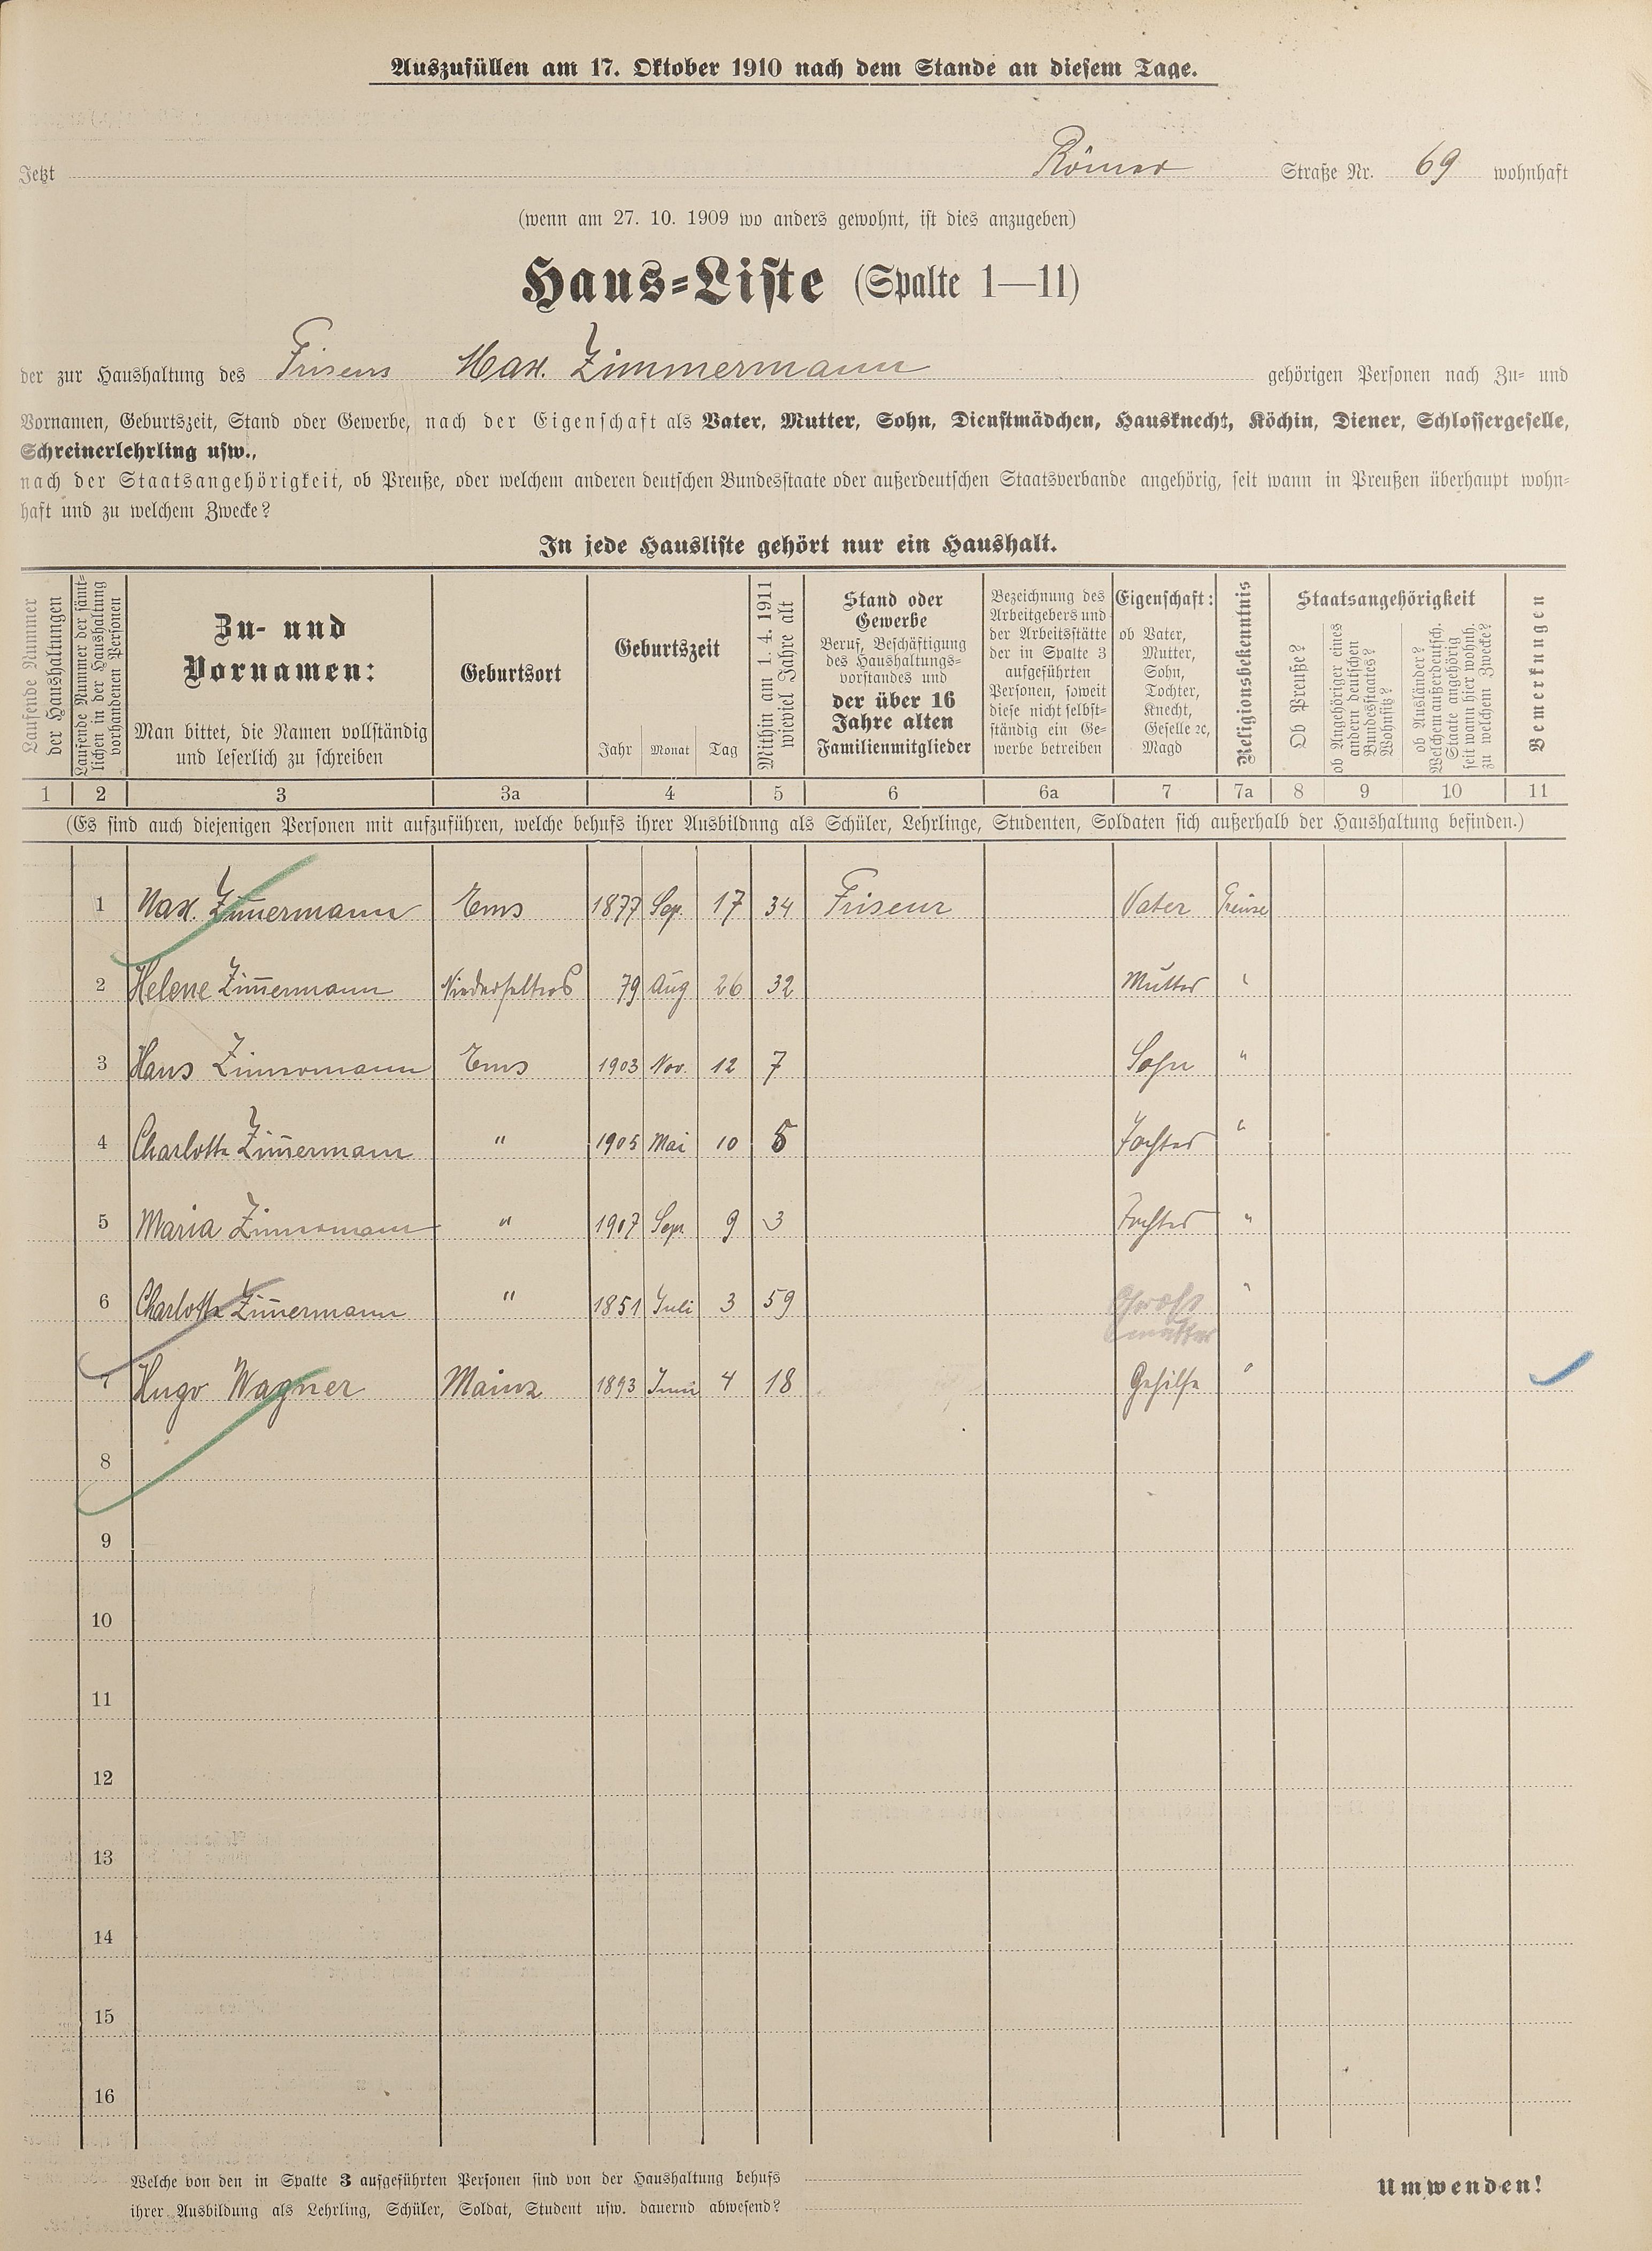 Auszufüllen am 17. Oktober 1910 nach dem Stande an diesem Tage.
Jetzt Römer Straße Nr. 69 wohnhaft
(wenn am 27. 10. 1909 wo anders gewohnt, ist dies anzugeben)
Haus-Liste (Spalte 1—11)
der zur Haushaltung des Friseurs Max. Zimmermann gehörigen Personen nach Zu- und
Vornamen, Geburtszeit, Stand oder Gewerbe, nach der Eigenschaft als Vater, Mutter, Sohn, Dienstmädchen, Hausknecht, Köchin, Diener, Schlossergeselle,
Schreinerlehrling usw.,
nach der Staatsangehörigkeit, ob Preuße, oder welchem anderen deutschen Bundesstaate oder außerdeutschen Staatsverbande angehörig, seit wann in Preußen überhaupt wohn-
haft und zu welchem Zwecke?
In jede Hausliste gehört nur ein Haushalt.
Laufende Nummer der Haushaltungen
Laufende Nummer der sämt-lichen in der Haushaltung vorhandenen Personen
Zu- und Vornamen:
Man bittet, die Namen vollständig und leserlich zu schreiben
Geburtsort
Geburtszeit
Jahr Monat Tag
Mithin am 1. 4. 1911 wieviel Jahre alt
Stand oder Gewerbe
Beruf, Beschäftigung des Haushaltungs-vorstandes und
der über 16 Jahre alten Familienmitglieder
Bezeichnung des Arbeitgebers und der Arbeitsstätte der in Spalte 3 aufgeführten Personen, soweit diese nicht selbst-ständig ein Ge-werbe betreiben
Eigenschaft:
ob Vater, Mutter, Sohn, Tochter, Knecht, Geselle ec, Magd
Religionsbekenntnis
Staatsangehörigkeit
Ob Preuße?
ob Angehöriger eines andern deutschen Bundesstaates? Wohnsitz?
ob Ausländer? Welchem außerdeutsch. Staate angehörig seit wann hier wohnh. zu welchem Zwecke?
Bemerkungen
1 2 3 3a 4 5 6 6a 7 7a 8 9 10 11
(Es sind auch diejenigen Personen mit aufzuführen, welche behufs ihrer Ausbildung als Schüler, Lehrlinge, Studenten, Soldaten sich außerhalb der Haushaltung befinden.)
1 Max. Zim̄ermann Ems 1877 Sep. 17 34 Friseur Vater
2 Helene Zim̄ermann Niederselters 79 Aug 26 32 Mutter "
3 Hans Zimmermann Ems 1903 Nov. 12 7 Sohn "
4 Charlotte Zim̄ermann " 1905 Mai 10 5 Tochter "
5 Maria Zimmermann " 1907 Sep. 9 3 Tochter "
6 Charlotte Zim̄ermann " 1851 Juli 3 59 Gross mutter "
7 Hugo Wagner Mainz 1893 Juni 4 18 Gehilfe "
8
9
10
11
12
13
14
15
16
Welche von den in Spalte 3 aufgeführten Personen sind von der Haushaltung behufs
ihrer Ausbildung als Lehrling, Schüler, Soldat, Student usw. dauernd abwesend?
Umwenden!